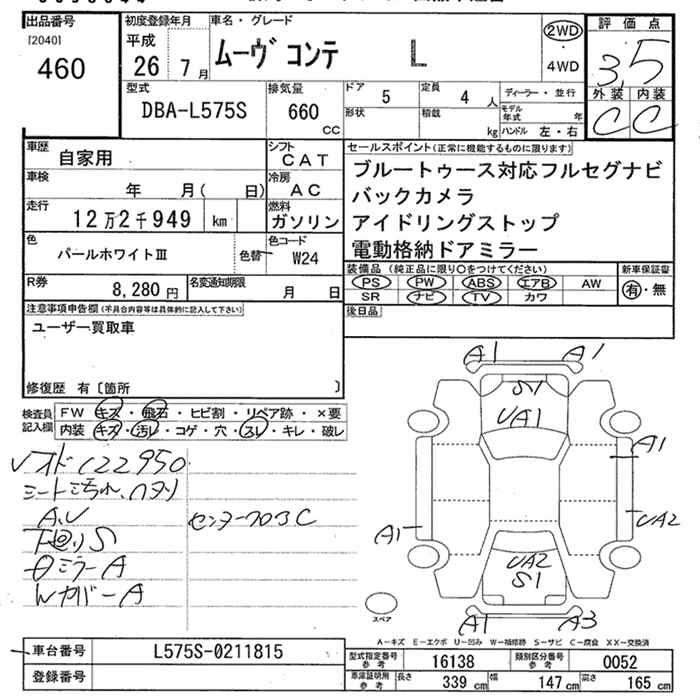 出品番号 初度登録年月 車名・グレード 評価点
[2040] 平成 2WD
460 26年7月 ムーヴ コンテ L 4WD 3.5
型式 排気量 ドア 5 定員 4人 ディーラー・並行 外装 内装
DBA-L575S 660cc 形状 積載 kg モデル年式 年 C C
ハンドル 左・右
車歴 自家用 シフト CAT セールスポイント(正常に機能するものに限ります)
車検 年 月(日) 冷房 AC ブルートゥース対応フルセグナビ
バックカメラ
走行 12万2千949 km 燃料 ガソリン アイドリングストップ
色 パールホワイトⅢ 色替 色コード W24 電動格納ドアミラー
装備品(純正品に限り○をつけてください) 新車保証書
R券 8,280円 名変通知期限 月 日 PS PW ABS エアB AW 有・無
SR ナビ TV カワ
注意事項申告欄(不具合内容等は具体的に記入して下さい) 後日品
ユーザー買取車
修復歴 有〔箇所 〕
検査員記入欄 FW キズ・飛石・ヒビ割・リペア跡・×要
内装 キズ・汚レ・コゲ・穴・スレ・キレ・破レ
122950
シート汚れ、
A,U センターフロアC
下廻りS
ミラーA
WカバーA
A1 A1
S1
UA1
A1
UA2
A1
UA2
S1
A1 A3
スペア
A-キズ E-エクボ U-凹み W-補修跡 S-サビ C-腐食 XX-交換済
車台番号 L575S-0211815 型式指定番号 参考 16138 類別区分番号 参考 0052
登録番号 車庫証明用 参考 長さ 339cm 幅 147cm 高さ 165cm